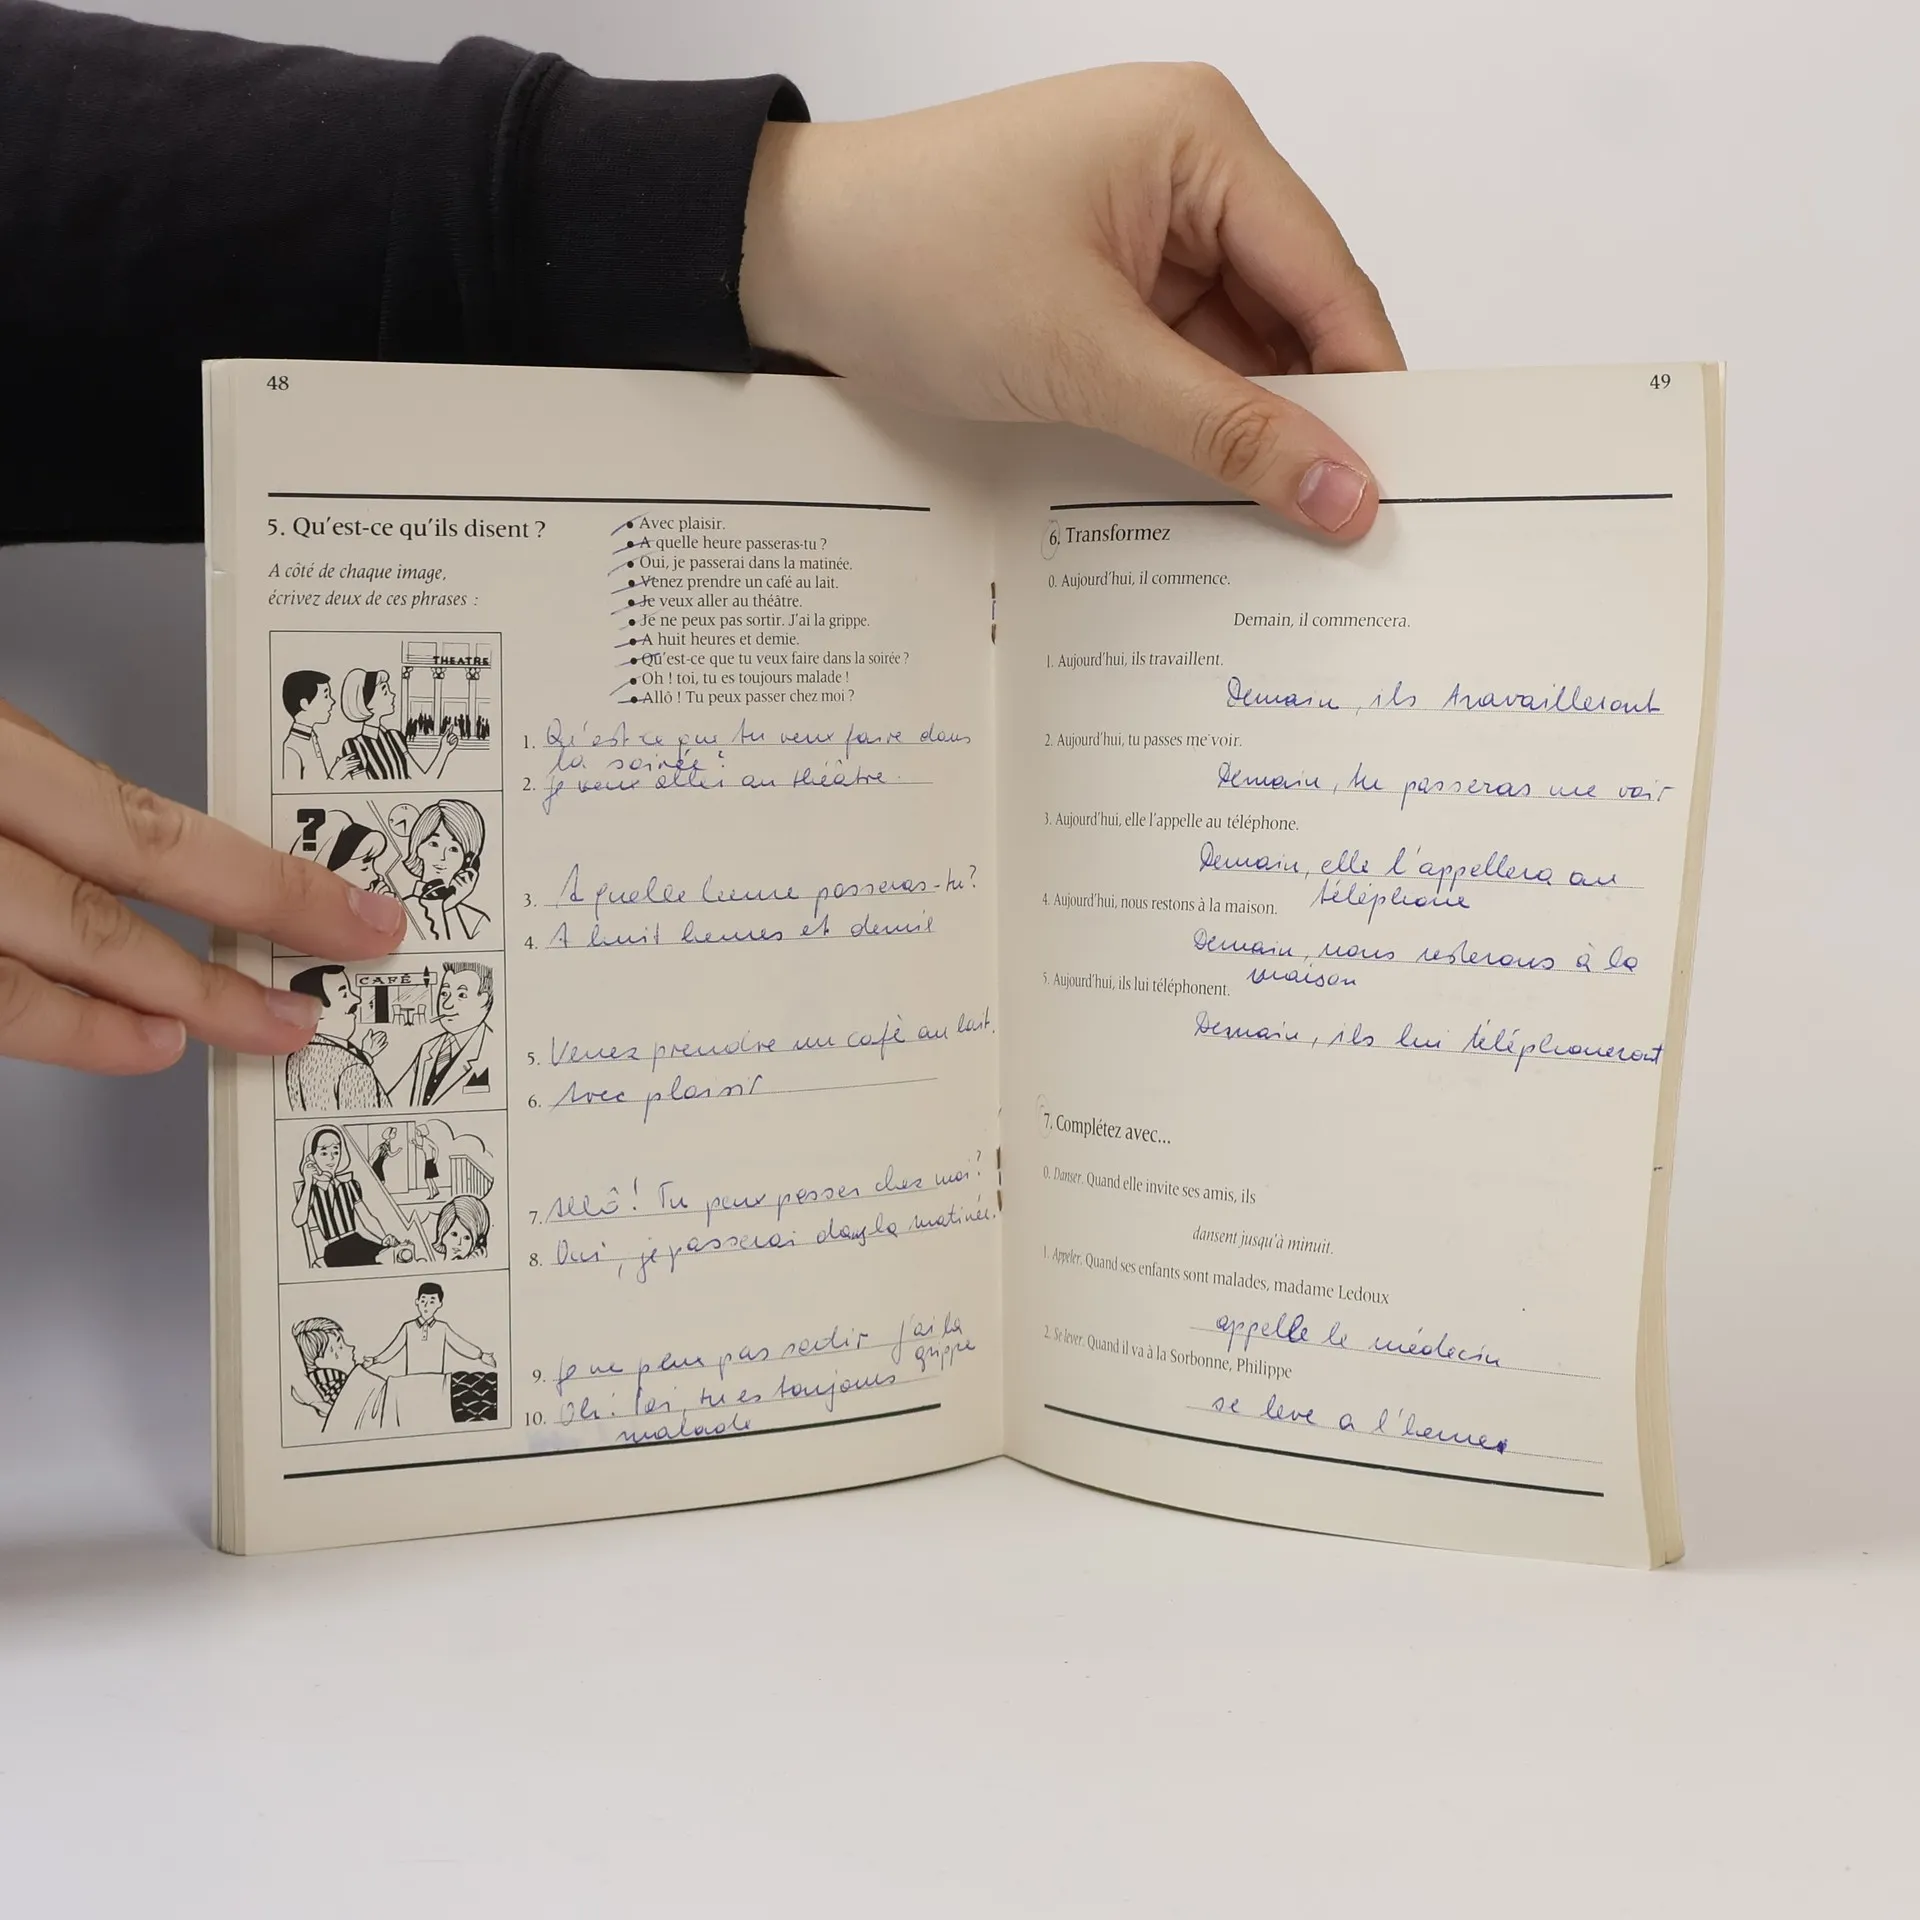 48
5. Qu'est-ce qu'ils disent ?
A côté de chaque image,
écrivez deux de ces phrases :
• Avec plaisir.
• A quelle heure passeras-tu ?
• Oui, je passerai dans la matinée.
• Venez prendre un café au lait.
• Je veux aller au théâtre.
• Je ne peux pas sortir. J'ai la grippe.
• A huit heures et demie.
• Qu'est-ce que tu veux faire dans la soirée ?
• Oh ! toi, tu es toujours malade !
• Allô ! Tu peux passer chez moi ?
THEATRE
?
CAFÉ
1. Qu'est-ce que tu veux faire dans
la soirée?
2. Je veux aller au théâtre.
3. A quelle heure passeras-tu?
4. A huit heures et demie
5. Venez prendre un café au lait.
6. Avec plaisir
7. Allô! Tu peux passer chez moi?
8. Oui, je passerai dans la matinée.
9. Je ne peux pas sortir j'ai la
grippe
10. Oh! toi, tu es toujours
malade
49
6. Transformez
0. Aujourd'hui, il commence.
Demain, il commencera.
1. Aujourd'hui, ils travaillent.
Demain, ils travailleront
2. Aujourd'hui, tu passes me voir.
Demain, tu passeras me voir
3. Aujourd'hui, elle l'appelle au téléphone.
Demain, elle l'appellera au
téléphone
4. Aujourd'hui, nous restons à la maison.
Demain, nous resterons à la
maison
5. Aujourd'hui, ils lui téléphonent.
Demain, ils lui téléphoneront
7. Complétez avec...
0. Danser. Quand elle invite ses amis, ils
dansent jusqu'à minuit.
1. Appeler. Quand ses enfants sont malades, madame Ledoux
appelle le médecin
2. Se lever. Quand il va à la Sorbonne, Philippe
se leve a l'heure